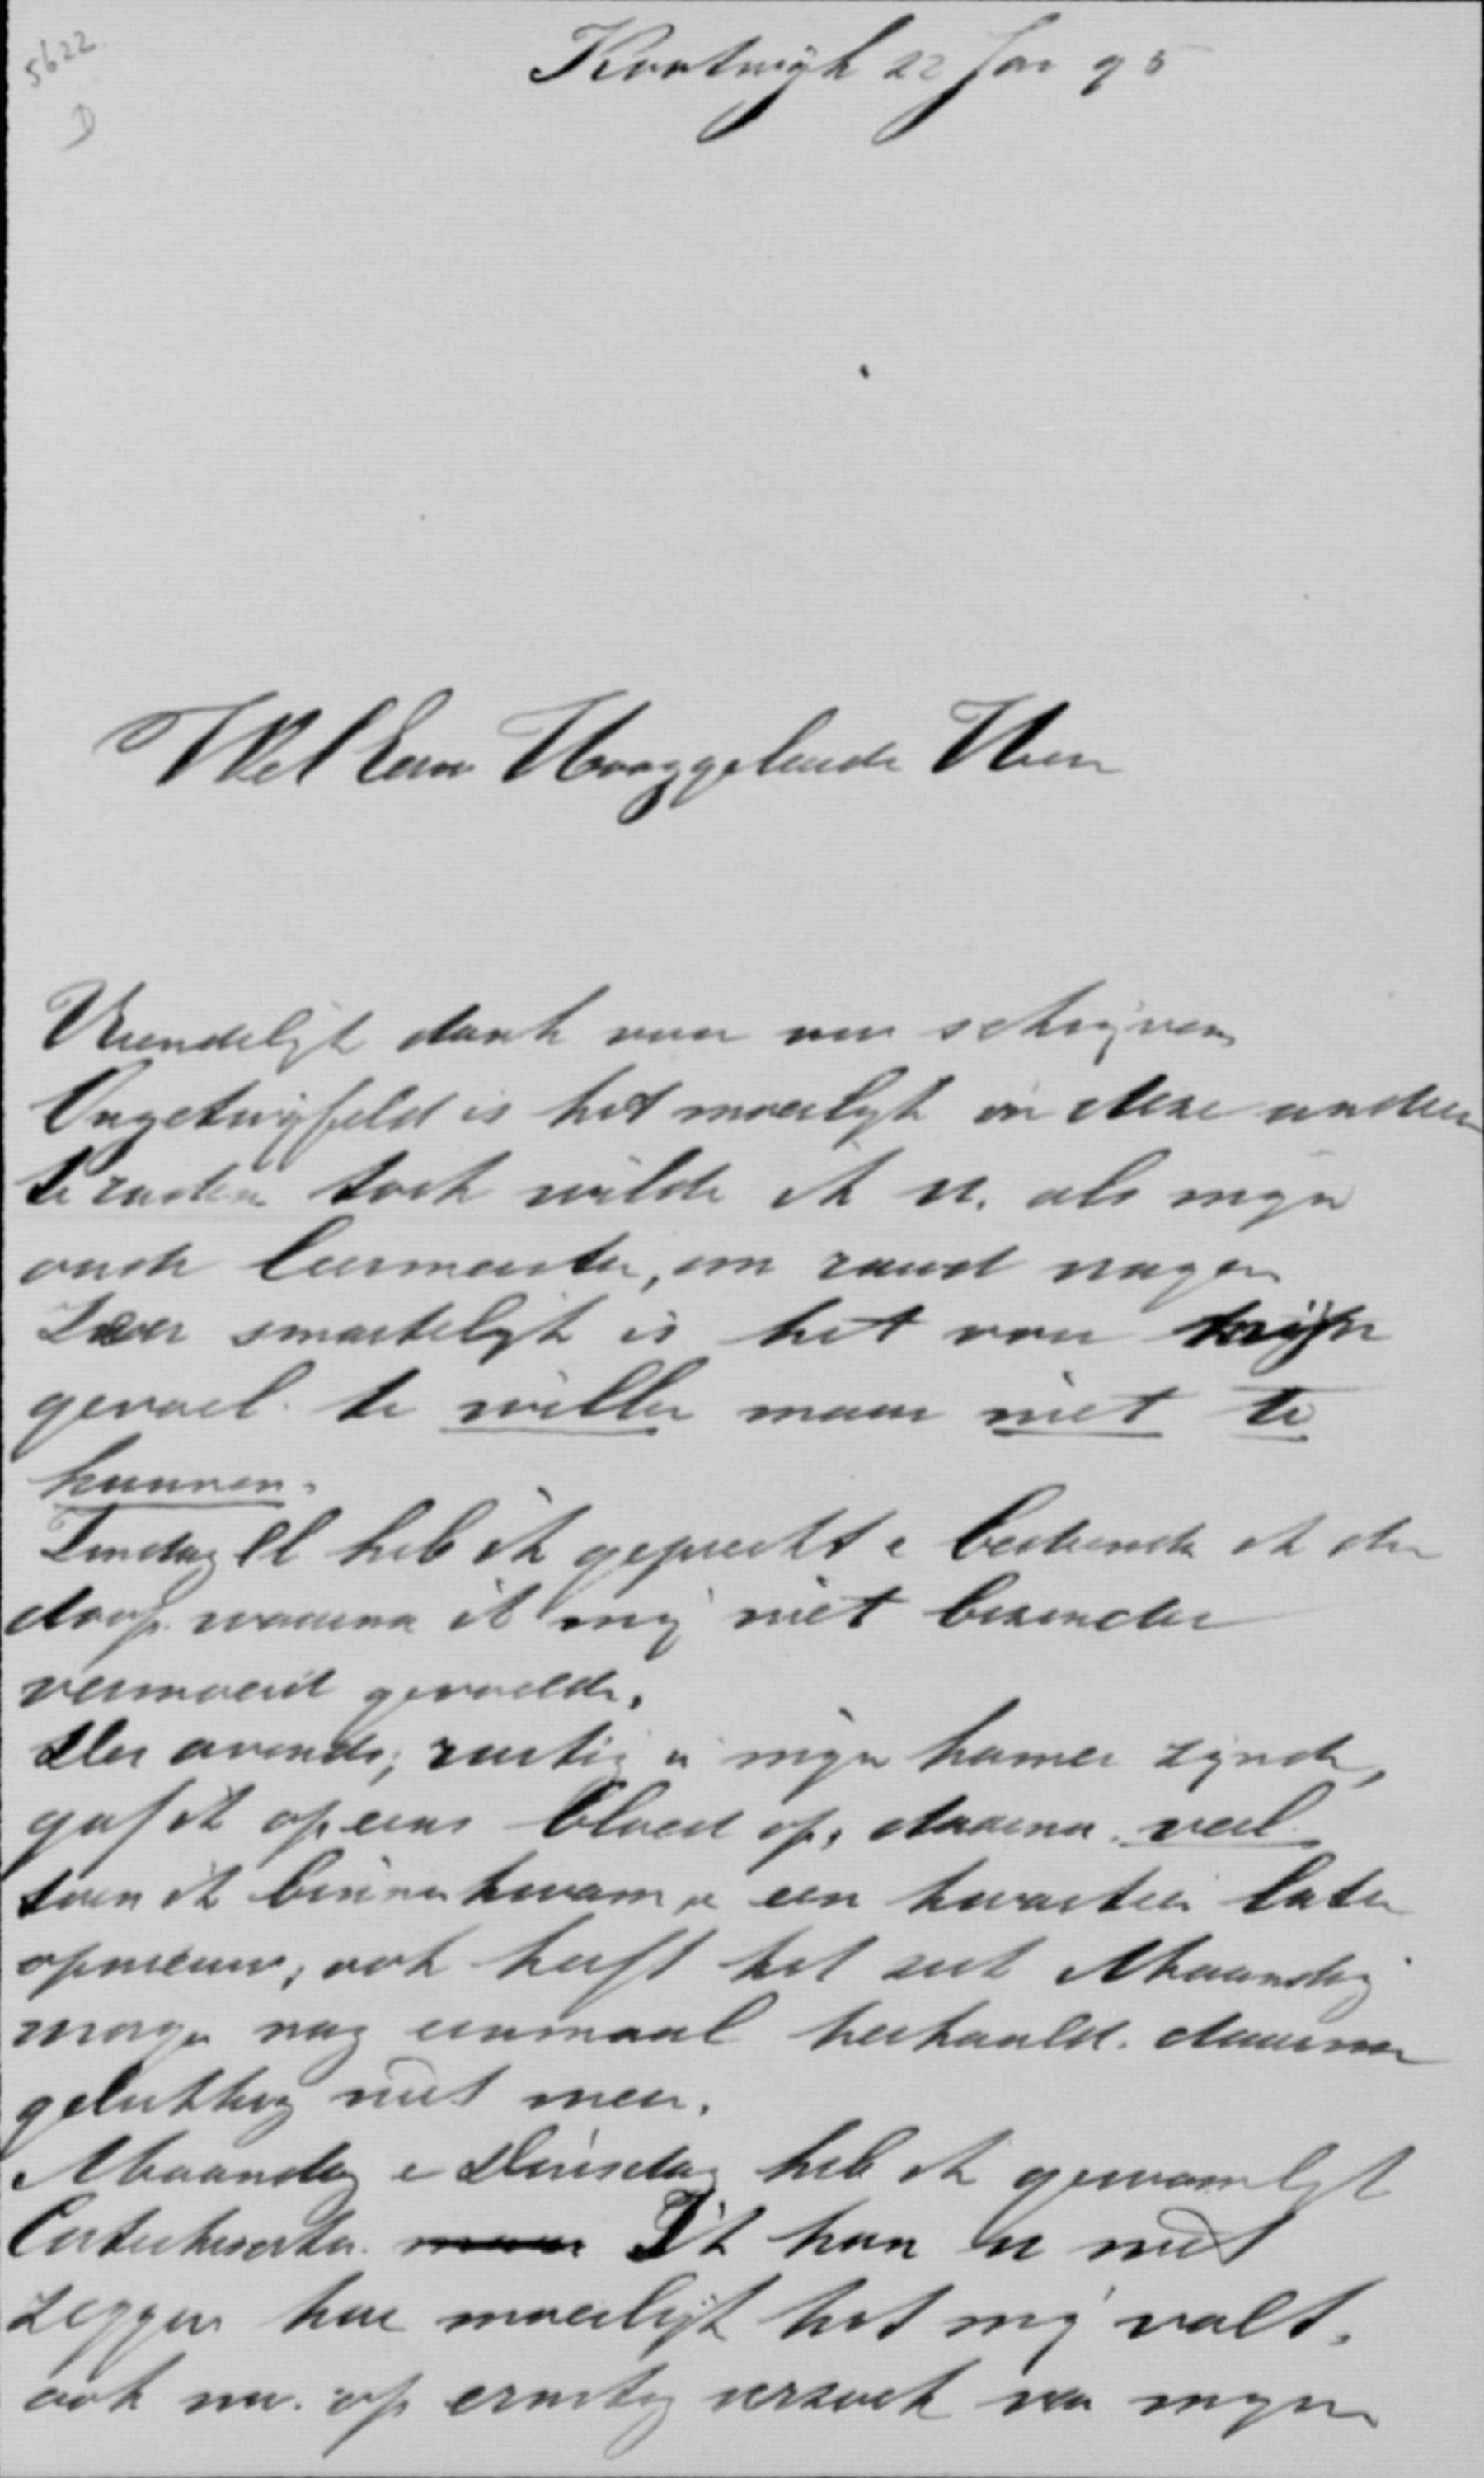 5622
D
Kootwijk 22 Jan 95
WelEerw Hooggeleerde Heer
Vriendelijk dank voor uw schrijven
Ongetwijfeld is het moeilijk in deze anderen
te raden toch wilde ik u. als mijn
oude leermeester, om raad vragen
Zeer smartelijk is het voor mijn
gevoel te willen maar niet te
kunnen.
Zondag ll heb ik gepreekt e bediende ik den
doop. waarna ik mij niet bezonder
vermoeid gevoelde.
Des avonds, rustig in mijn kamer zijnde,
gaf ik opeens bloed op, daarna veel
toen ik binnenkwam, e een kwartier later
opnieuw, ook heeft het zich Maandag
morgen nog eenmaal herhaald. daarna
gelukkig niet meer.
Maandag e Dinsdag heb ik gewoonlijk
Ik kan u niet
zeggen hoe moeilijk het mij valt,
ook nu. op ernstig verzoek van mijn